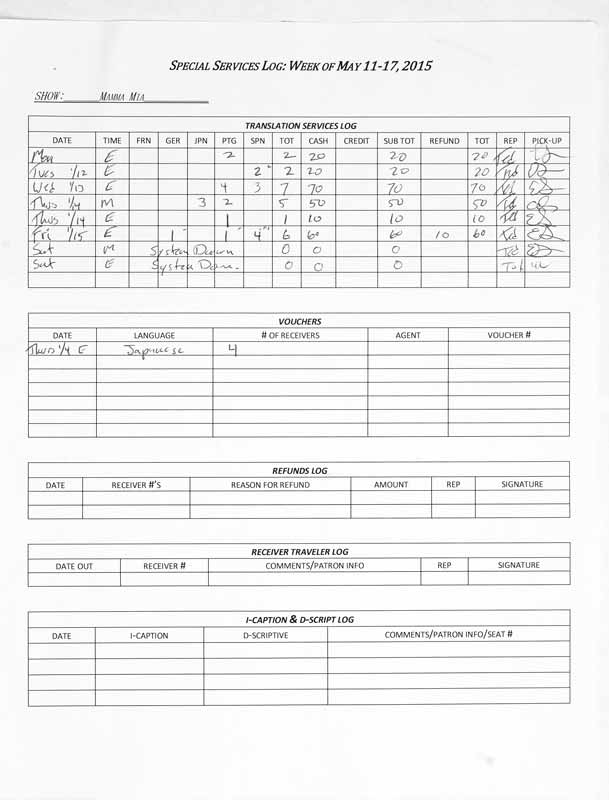 SPECIAL SERVICES LOG: WEEK OF MAY 11-17, 2015
SHOW: MAMMA MIA
TRANSLATION SERVICES LOG
DATE TIME FRN GER JPN PTG SPN TOT CASH CREDIT SUB TOT REFUND TOT REP PICK-UP
Mon E 2 2 20 20 20 Ted
Tues 1/12 E 2 2 20 20 20 Ted
Wed 1/13 E 4 3 7 70 70 70 Ted
Thurs 1/14 M 3 2 5 50 50 50 Ted
Thurs 1/14 E 1 1 10 10 10 Ted
Fri 1/15 E 1 1 4 6 60 60 10 60 Ted
Sat M System Down 0 0 0 Ted
Sat E System Down. 0 0 0 Ted
VOUCHERS
DATE LANGUAGE # OF RECEIVERS AGENT VOUCHER #
Thurs 1/4 E Japanese 4
REFUNDS LOG
DATE RECEIVER #'S REASON FOR REFUND AMOUNT REP SIGNATURE
RECEIVER TRAVELER LOG
DATE OUT RECEIVER # COMMENTS/PATRON INFO REP SIGNATURE
I-CAPTION & D-SCRIPT LOG
DATE I-CAPTION D-SCRIPTIVE COMMENTS/PATRON INFO/SEAT #